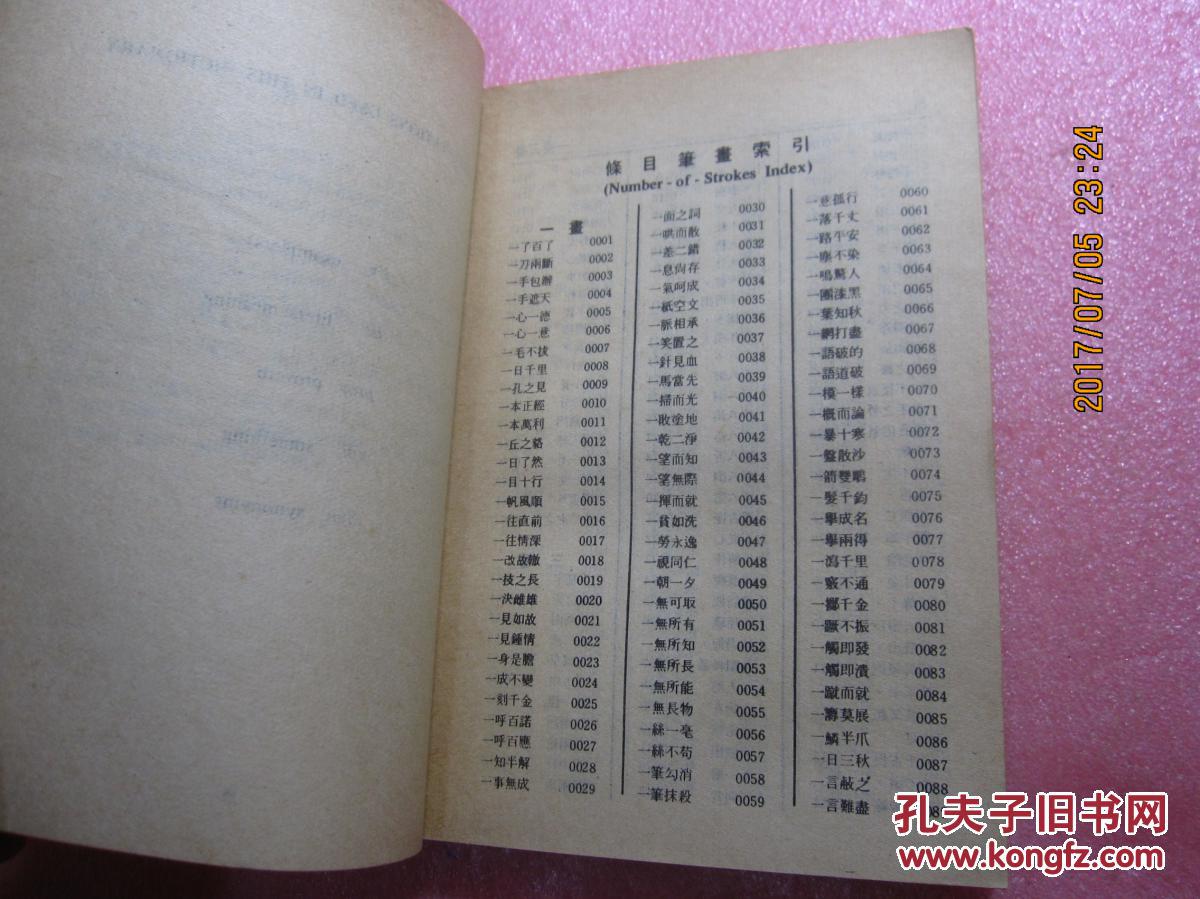 條目筆畫索引
(Number - of - Strokes Index)
一 畫
一了百了 0001
一刀兩斷 0002
一手包辦 0003
一手遮天 0004
一心一德 0005
一心一意 0006
一毛不拔 0007
一日千里 0008
一孔之見 0009
一本正經 0010
一本萬利 0011
一丘之貉 0012
一目了然 0013
一目十行 0014
一帆風順 0015
一往直前 0016
一往情深 0017
一改故轍 0018
一技之長 0019
一決雌雄 0020
一見如故 0021
一見鍾情 0022
一身是膽 0023
一成不變 0024
一刻千金 0025
一呼百諾 0026
一呼百應 0027
一知半解 0028
一事無成 0029
一面之詞 0030
一哄而散 0031
一差二錯 0032
一息尙存 0033
一氣呵成 0034
一紙空文 0035
一脈相承 0036
一笑置之 0037
一針見血 0038
一馬當先 0039
一掃而光 0040
一敗塗地 0041
一乾二淨 0042
一望而知 0043
一望無際 0044
一揮而就 0045
一貧如洗 0046
一勞永逸 0047
一視同仁 0048
一朝一夕 0049
一無可取 0050
一無所有 0051
一無所知 0052
一無所長 0053
一無所能 0054
一無長物 0055
一絲一毫 0056
一絲不苟 0057
一筆勾消 0058
一筆抹殺 0059
一意孤行 0060
一落千丈 0061
一路平安 0062
一塵不染 0063
一鳴驚人 0064
一團漆黑 0065
一葉知秋 0066
一網打盡 0067
一語破的 0068
一語道破 0069
一模一樣 0070
一概而論 0071
一暴十寒 0072
一盤散沙 0073
一箭雙鵰 0074
一髮千鈞 0075
一擧成名 0076
一擧兩得 0077
一瀉千里 0078
一竅不通 0079
一擲千金 0080
一蹶不振 0081
一觸即發 0082
一觸即潰 0083
一蹴而就 0084
一籌莫展 0085
一鱗半爪 0086
一日三秋 0087
一言蔽之 0088
一言難盡
2017/07/05 23:24
孔夫子旧书网
www.kongfz.com